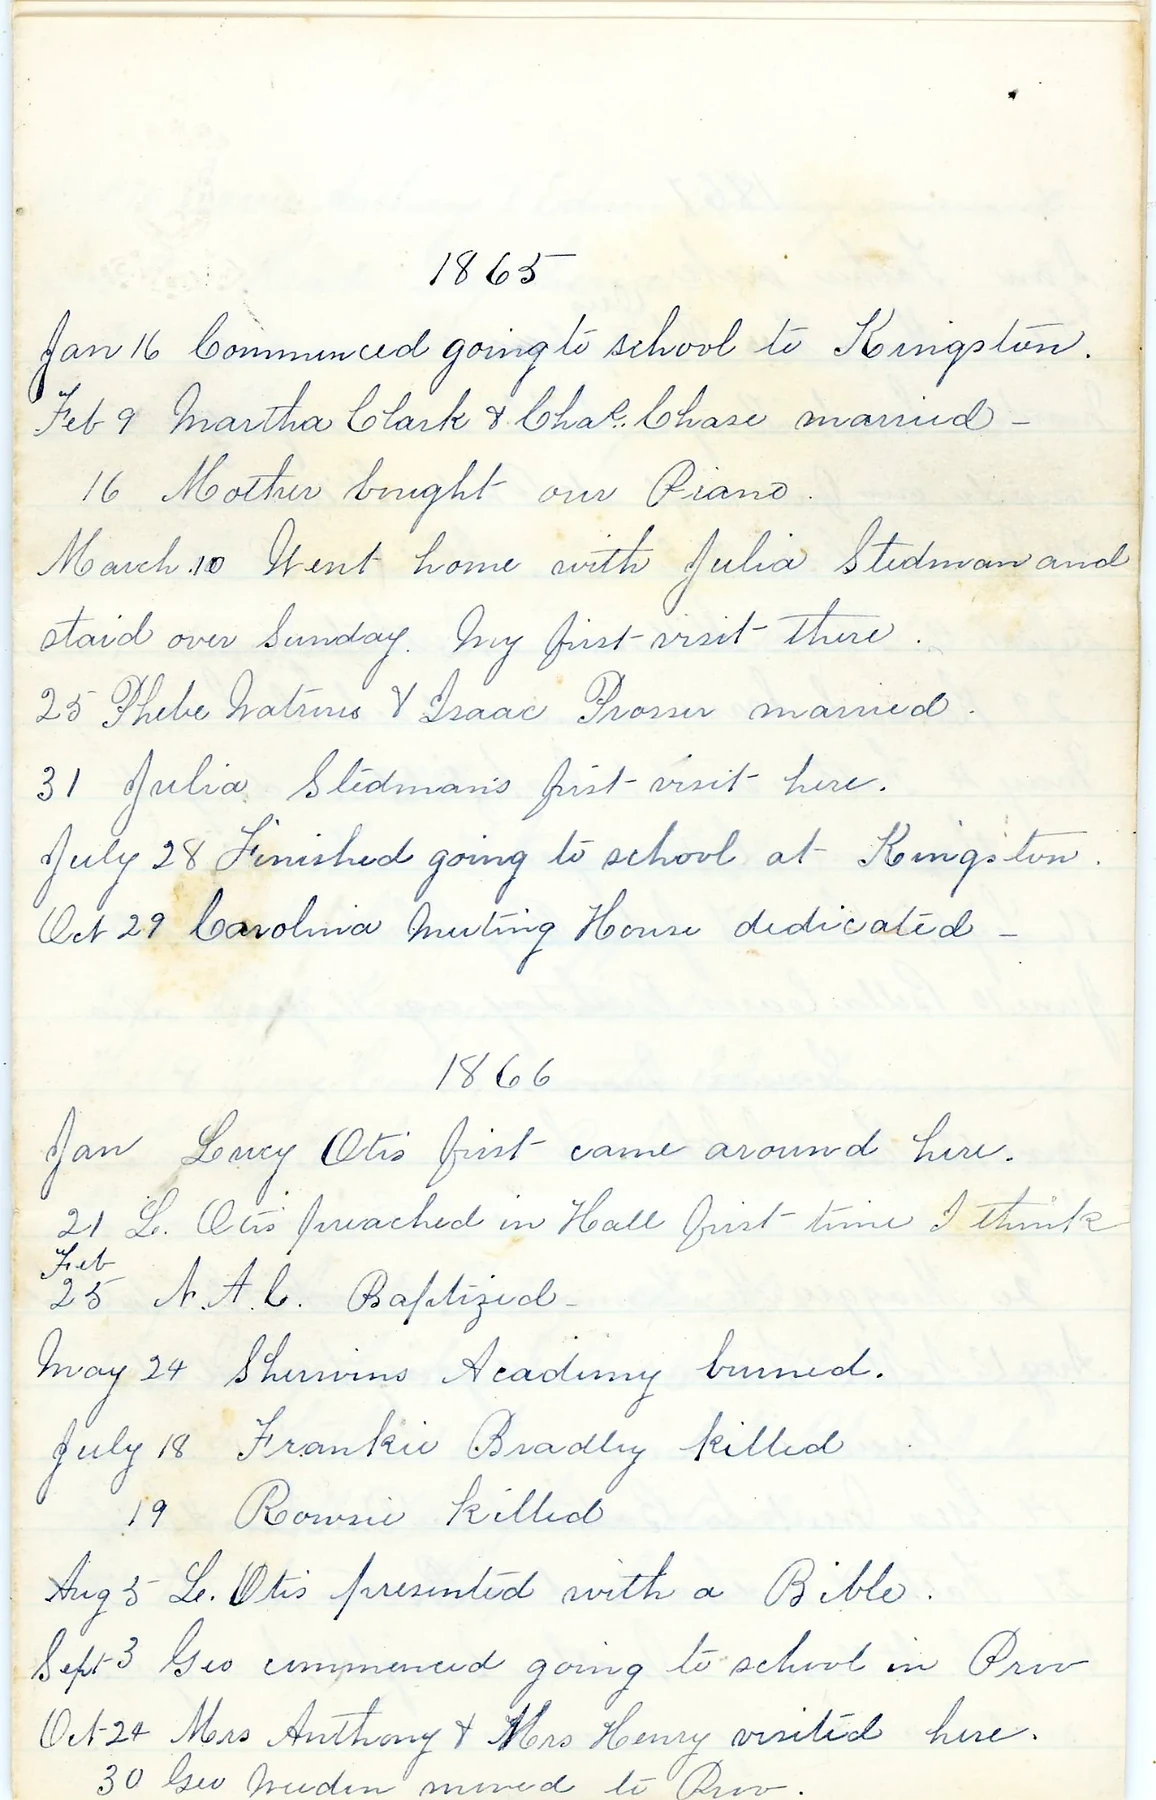 1865
Jan 16 Commenced going to school to Kingston.
Feb 9 Martha Clark & Chas. Chase married -
16 Mother bought our Piano.
March 10 Went home with Julia Stedman and
staid over Sunday. My first visit there.
25 Phebe Watrous & Isaac Prosser married.
31 Julia Stedmans first visit here.
July 28 Finished going to school at Kingston.
Oct 29 Carolina Meeting House dedicated -
1866
Jan Lucy Otis first came around here.
21 L. Otis preached in Hall first time I think
Feb
25 N.A.C. Baptized -
May 24 Sherwins Academy burned.
July 18 Frankie Bradley killed
19 Rowsie killed
Aug 5 L. Otis presented with a Bible.
Sept 3 Geo commenced going to school in Prov
Oct 24 Mrs Anthony & Mrs Henry visited here.
30 Geo Weeden moved to Prov.